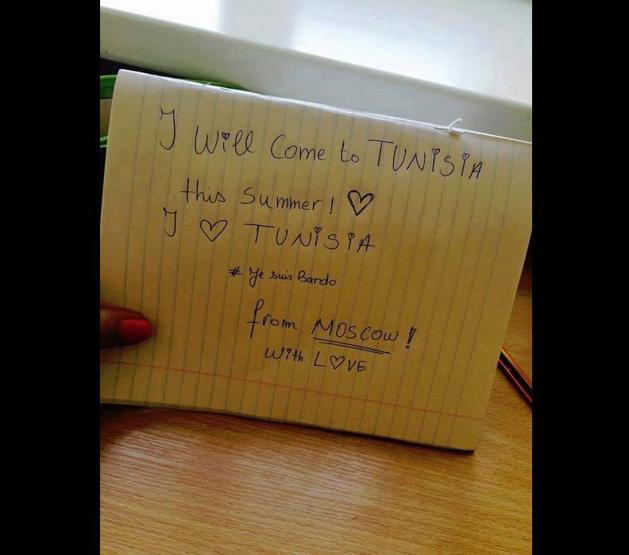 I will come to TUNISIA
this summer! ♡
I ♡ TUNISIA
# Je suis Bardo
from MOSCOW!
with LOVE